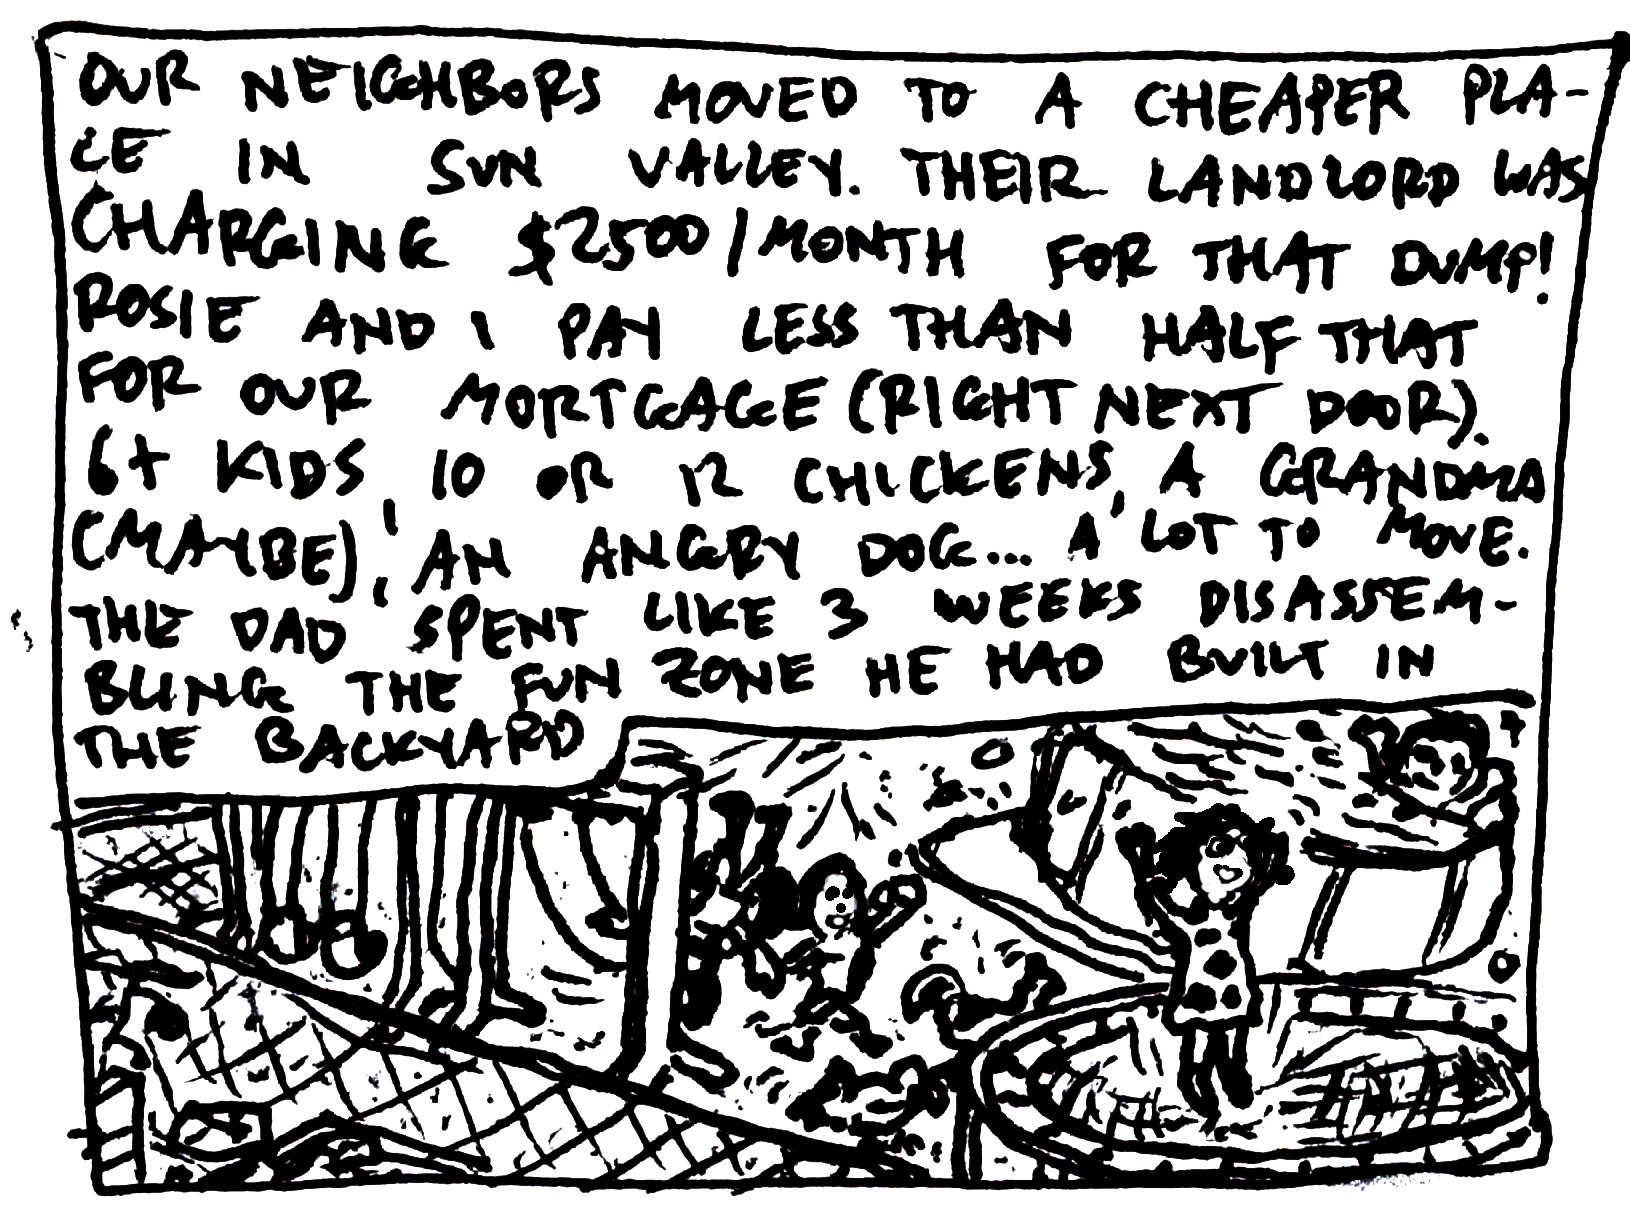 OUR NEIGHBORS MOVED TO A CHEAPER PLA-
CE IN SUN VALLEY. THEIR LANDLORD WAS
CHARGING $2500/MONTH FOR THAT DUMP!
ROSIE AND I PAY LESS THAN HALF THAT
FOR OUR MORTGAGE (RIGHT NEXT DOOR).
6+ KIDS, 10 OR 12 CHICKENS, A GRANDMA
(MAYBE), AN ANGRY DOG... A LOT TO MOVE.
THE DAD SPENT LIKE 3 WEEKS DISASSEM-
BLING THE FUN ZONE HE HAD BUILT IN
THE BACKYARD